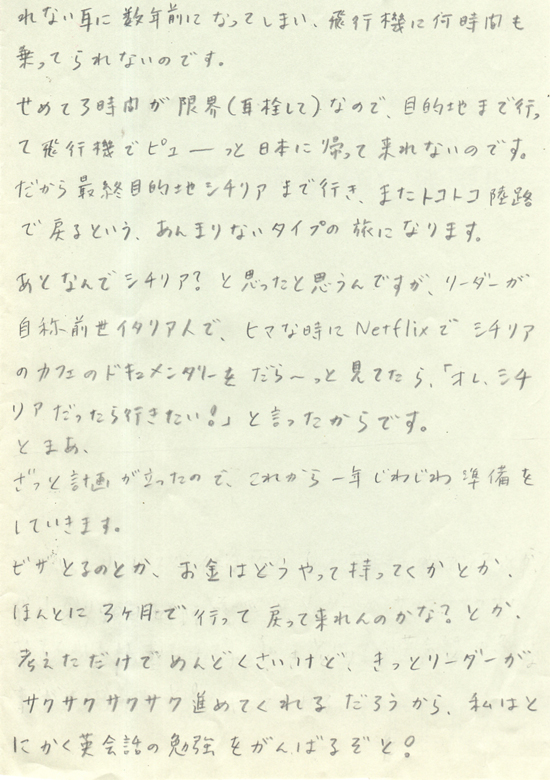 れない耳に数年前になってしまい、飛行機に何時間も
乗ってられないのです。
せめて3時間が限界(耳栓して)なので、目的地まで行っ
て飛行機でピューーっと日本に帰って来れないのです。
だから最終目的地シチリアまで行き、またトコトコ陸路
で戻るという、あんまりないタイプの旅になります。
あとなんでシチリア?と思ったと思うんですが、リーダーが
自称前世イタリア人で、ヒマな時にNetflixでシチリア
のカフェのドキュメンタリーをだら〜っと見てたら、「オレ、シチ
リアだったら行きたい!」と言ったからです。
とまあ、
ざっと計画が立ったので、これから一年じわじわ準備を
していきます。
ビザとるのとか、お金はどうやって持ってくかとか、
ほんとに3ヶ月で行って戻って来れんのかな?とか、
考えただけでめんどくさいけど、きっとリーダーが
サクサクサクサク進めてくれるだろうから、私はと
にかく英会話の勉強をがんばるぞと!